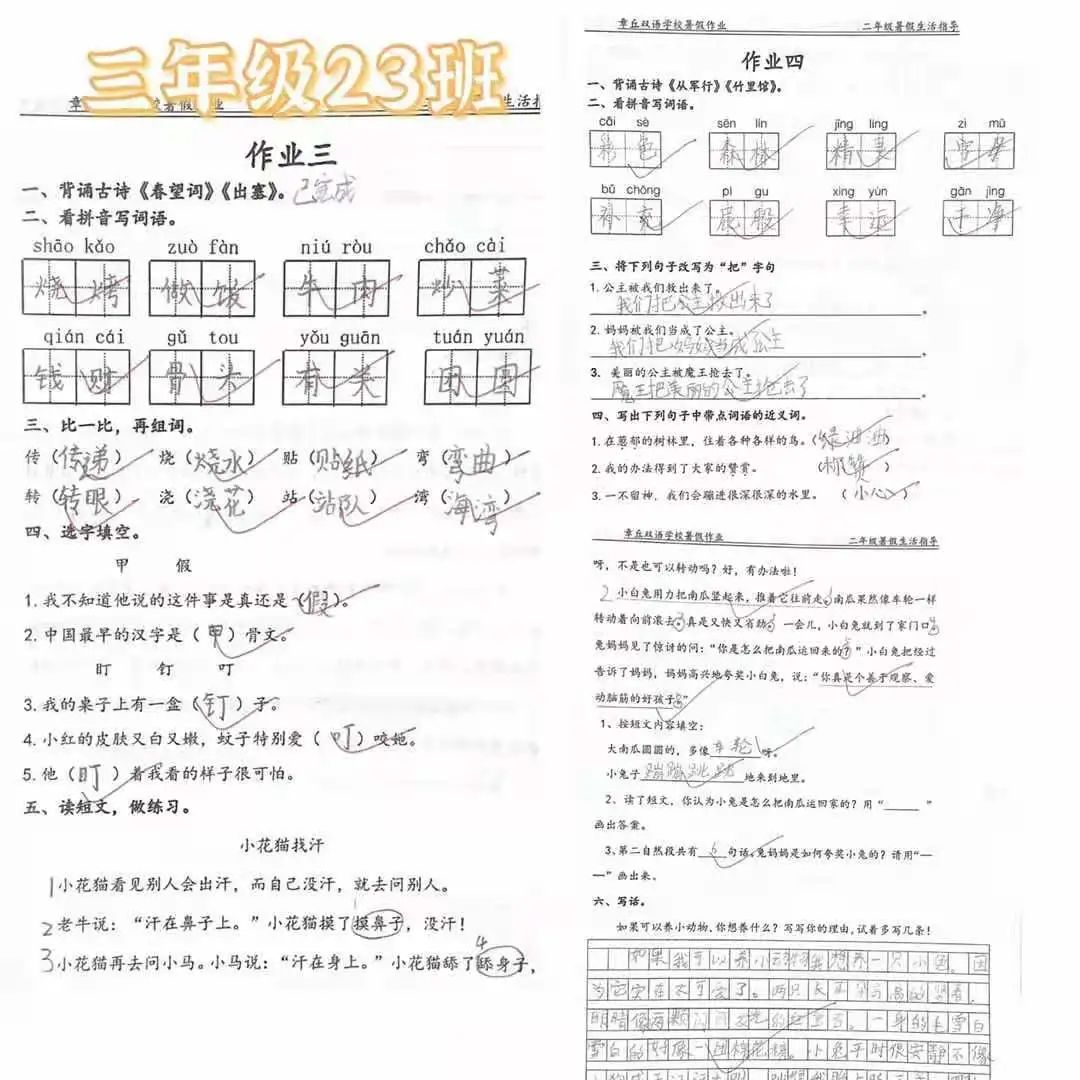 三年级23班
作业三
一、背诵古诗《春望词》《出塞》。已完成
二、看拼音写词语。
shāo kǎo zuò fàn niú ròu chǎo cài
烧烤 做饭 牛肉 炒菜
qián cái gǔ tou yǒu guān tuán yuán
钱财 骨头 有关 团圆
三、比一比，再组词。
传（传递） 烧（烧水） 贴（贴纸） 弯（弯曲）
转（转眼） 浇（浇花） 站（站队） 湾（海湾）
四、选字填空。
甲 假
1. 我不知道他说的这件事是真还是（假）。
2. 中国最早的汉字是（甲）骨文。
盯 钉 叮
3. 我的桌子上有一盒（钉）子。
4. 小红的皮肤又白又嫩，蚊子特别爱（叮）咬她。
5. 他（盯）着我看的样子很可怕。
五、读短文，做练习。
小花猫找汗
1小花猫看见别人会出汗，而自己没汗，就去问别人。
2老牛说：“汗在鼻子上。”小花猫摸了摸鼻子，没汗！
3小花猫再去问小马。小马说：“汗在身上。”小花猫舔了舔身子，
4
章丘双语学校暑假作业 二年级暑假生活指导
作业四
一、背诵古诗《从军行》《竹里馆》。
二、看拼音写词语。
cǎi sè sēn lín jīng líng zì mǔ
彩色 森林 精灵 字母
bǔ chōng pì gu xìng yùn gān jìng
补充 屁股 幸运 干净
三、将下列句子改写为“把”字句
1. 公主被我们救出来了。
我们把公主救出来了。
2. 妈妈被我们当成了公主。
我们把妈妈当成公主。
3. 美丽的公主被魔王抢去了。
魔王把美丽的公主抢去了。
四、写出下列句子中带点词语的近义词。
1. 在葱郁的树林里，住着各种各样的鸟。（绿油油）
2. 我的办法得到了大家的赞赏。（称赞）
3. 一不留神，我们会蹦进很深很深的水里。（小心）
章丘双语学校暑假作业 二年级暑假生活指导
呀，不是也可以转动吗？好，有办法啦！
2 小白兔用力把南瓜竖起来，推着它往前走。南瓜果然像车轮一样
转动着向前滚去。真是又快又省劲。一会儿，小白兔就到了家门口。
兔妈妈见了惊讶的问：“你是怎么把南瓜运回来的？”小白兔把经过
告诉了妈妈，妈妈高兴地夸奖小白兔，说：“你真是个善于观察、爱
动脑筋的好孩子。”
1、按短文内容填空：
大南瓜圆圆的，多像车轮呀。
小兔子蹦蹦跳跳地来到地里。
2、读了短文，你认为小兔是怎么把南瓜运回家的？用“＿＿＿”
画出答案。
3、第二自然段共有6句话。兔妈妈是如何夸奖小兔的？请用“—
—”画出来。
六、写话。
如果可以养小动物、你想养什么？写写你的理由，试着多写几条！
如果我可以养小动物我想养一只小兔。因
为它实在太可爱了。两只长耳
眼睛像两颗闪闪发光的红宝石。一身的毛雪白
雪白的好像一团棉花糖。小兔平时很安静不像